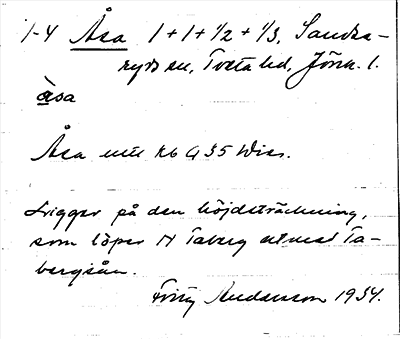 1-4 Åsa 1+1+1/2+1/3, Sandse-
ryds sn, Tveta hd, Jönk. l.
åsa
Åsa utu Kb G 35 Wiss.
Ligger på den höjdsträckning,
som löper N Taberg utmed Ta-
bergsån.
Fritz Andersson 1934.